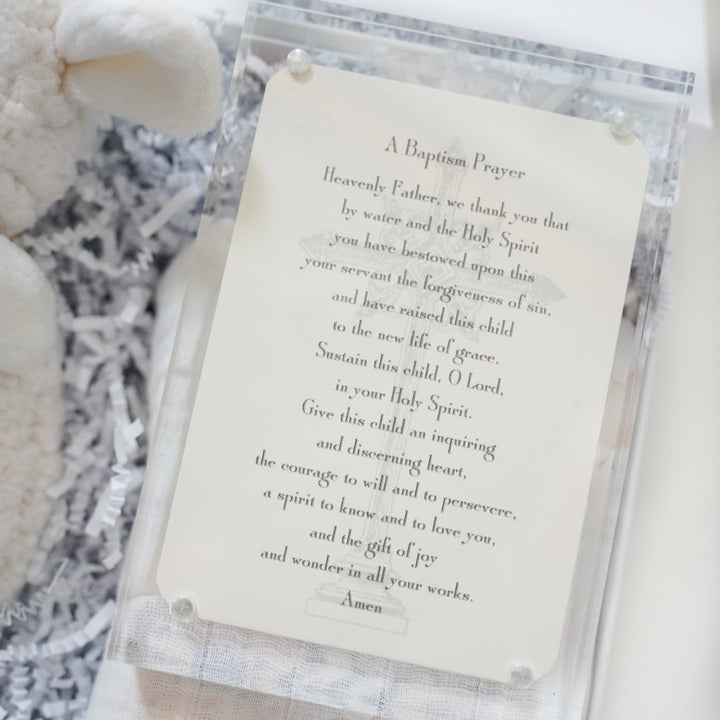 A Baptism Prayer
Heavenly Father, we thank you that
by water and the Holy Spirit
you have bestowed upon this
your servant the forgiveness of sin,
and have raised this child
to the new life of grace.
Sustain this child, O Lord,
in your Holy Spirit.
Give this child an inquiring
and discerning heart,
the courage to will and to persevere,
a spirit to know and to love you,
and the gift of joy
and wonder in all your works.
Amen